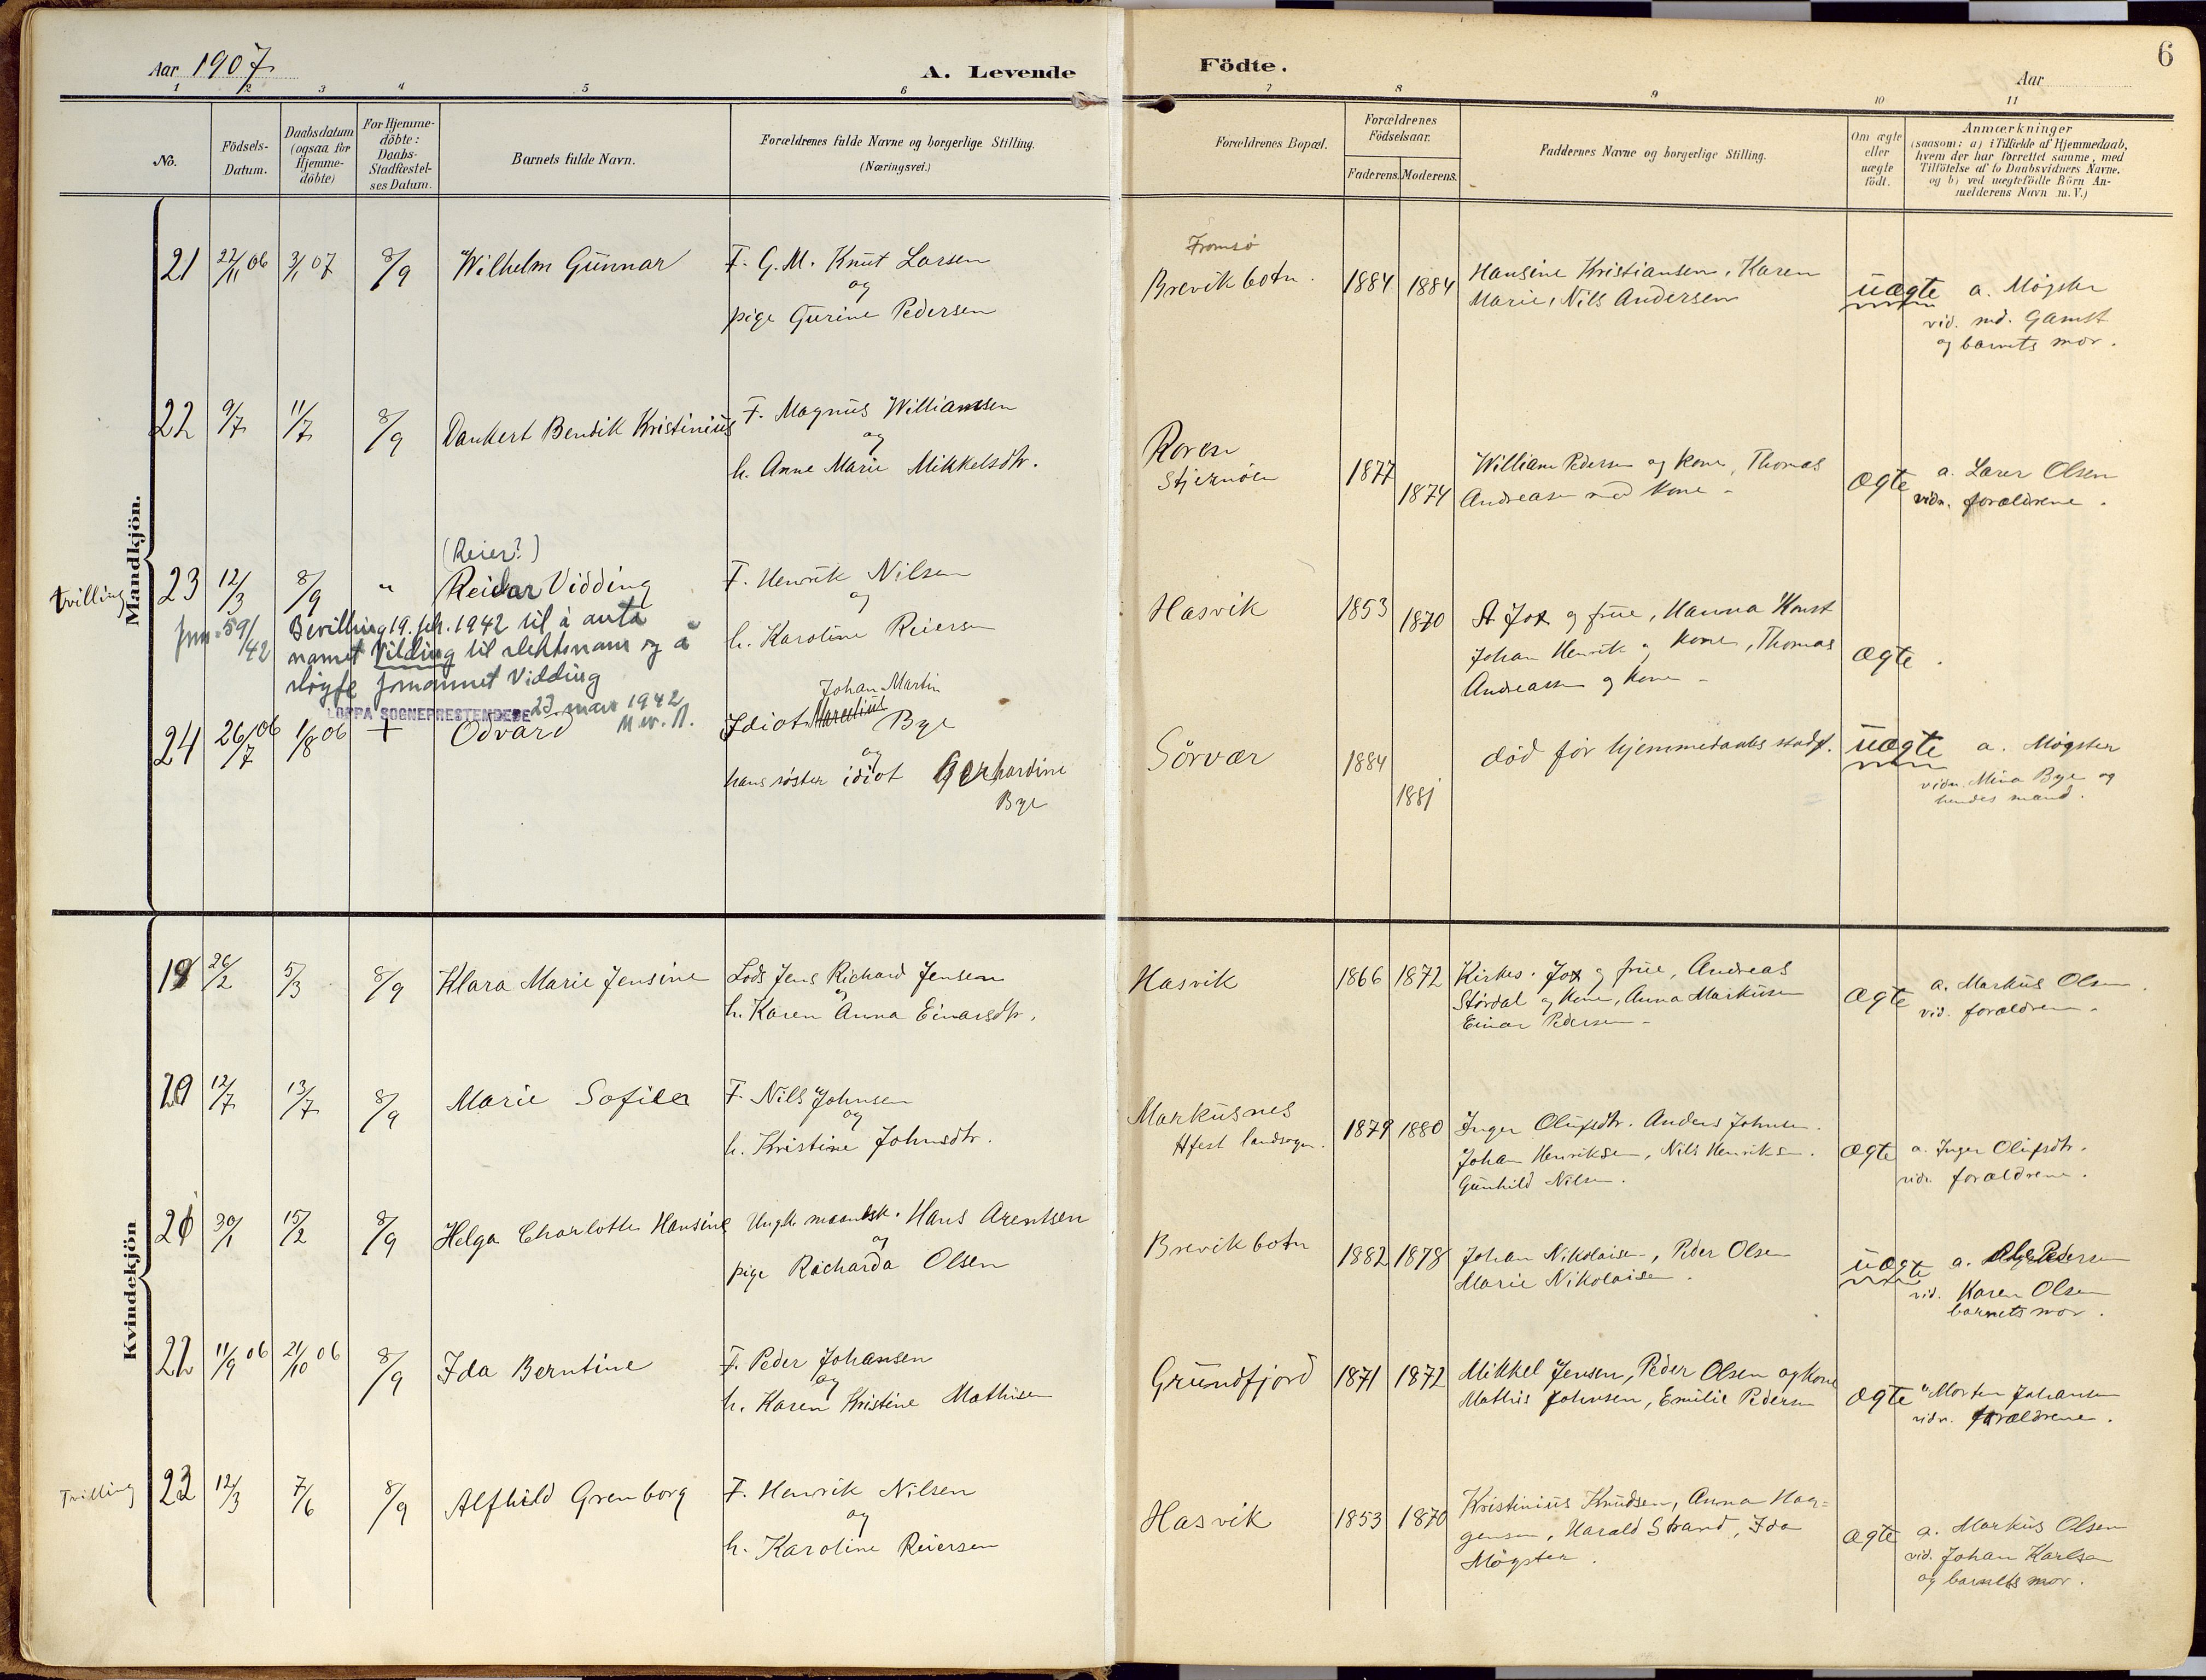 Aar 1907
A. Levende
Födte.
Aar
6
1 2 3 4 5 6 7 8 9 10 11
No.
Födsels-
Datum.
Daabsdatum
(ogsaa for
Hjemme-
döbte)
For Hjemme-
döbte:
Daabs-
Stadfæstel-
ses Datum.
Barnets fulde Navn.
Forældrenes fulde Navne og borgerlige Stilling.
(Næringsvei.)
Forældrenes Bopæl.
Forældrenes
Födselsaar.
Faderens. Moderens.
Faddernes Navne og borgerlige Stilling.
Om ægte
eller
uægte
födt.
Anmærkninger
(saasom: a) i Tilfælde af Hjemmedaab,
hvem der har forrettet samme, med
Tilföielse af to Daabsvidners Navne.
og b) ved uægtefödte Börn An-
melderens Navn m. V.)
Mandkjön.
21 22/11 06 3/1 07 8/9 Wilhelm Gunnar
F. G. M. Knut Larsen
og
pige Gurine Pedersen
Tromsö
Brevikbotn. 1884 1884
Hansine Kristiansen, Karen
Marie, Nils Andersen
uægte a. Mögster
vid. md. Gamst
og barnets mor.
22 9/7 11/7 8/9 Dankert Bendik Kristinius
F. Magnus Williamsen
og
h. Anne Marie Mikkelsdtr.
Stjernöen 1877 1874
William Pedersen og kone, Thomas
Andreasen med kone -
ægte a. Olsen
vidn. forældrene.
tvilling
(Reier?)
23 12/3 8/9 " Reidar Vidding
F. Henrik Nilsen
og
h. Karoline Reiersen
Hasvik 1853 1870
og frue, Hanna
Johan Henrik og kone, Thomas
Andreassen og kone -
ægte.
59/42
Bevilling 19. feb. 1942 til å anta
namet Vilding til slektsnavn og å
sløyfe fornamnet Vidding
LOPPA SOGNEPRESTEMBEDE 23. mars 1942
24 26/7 06 1/8 06 + Odvard
Johan Martin
Idiot Marelius Bye
og
hans söster idiot Gerhardine
Bye
Sörvær 1884 1881
död för hjemmedaabs stadf.
uægte a. Mögster
vidn. Mina Bye og
hendes mand.
Kvindekjön
19 26/2 5/3 8/9 Klara Marie Jensine
Lods Jens Richard Jensen
og
h. Karen Anna Einarsdtr.
Hasvik 1866 1872
Kirkes. og frue, Andreas
Stördal og kone, Anna Markusen
Einar Pedersen -
ægte a. Markus Olsen.
vid. forældrene.
20 12/7 13/7 8/9 Marie Sofie
F. Nils Johnsen
og
h. Kristine Johnsdtr.
Markusnes
Hfest landsogn. 1879 1880
Inger Olufsdtr. Anders Johnsen.
Johan Henriksen, Nils Henriksen.
Gunhild Nilsen.
ægte a. Inger Olufsdtr.
vidn. forældrene.
21 30/1 15/2 8/9 Helga Charlotte Hansine
Ungk. Hans Arentsen
og
pige Richarda Olsen
Brevikbotn 1882 1878
Johan Nikolaisen, Peder Olsen
Marie Nikolaisen.
uægte a. Pedersen
vid. Karen Olsen
barnets mor.
22 11/9 06 21/10 06 8/9 Ida Berntine
F. Peder Johansen
og
h. Karen Kristine Mathisen
Grundfjord 1871 1872
Mikkel Jensen, Peder Olsen og kone
Mathis Johnsen, Emilie Pedersen
ægte a. Morten Johansen
vidn. forældrene.
Tvilling
23 12/3 7/6 8/9 Alfhild Grenborg
F. Henrik Nilsen
og
h. Karoline Reiersen
Hasvik 1853 1870
Kristinius Knudsen, Anna Haa-
gensen, Harald Strand, Ida
Mögster.
ægte a. Markus Olsen
vid. Johan Karlsen
og barnets mor.